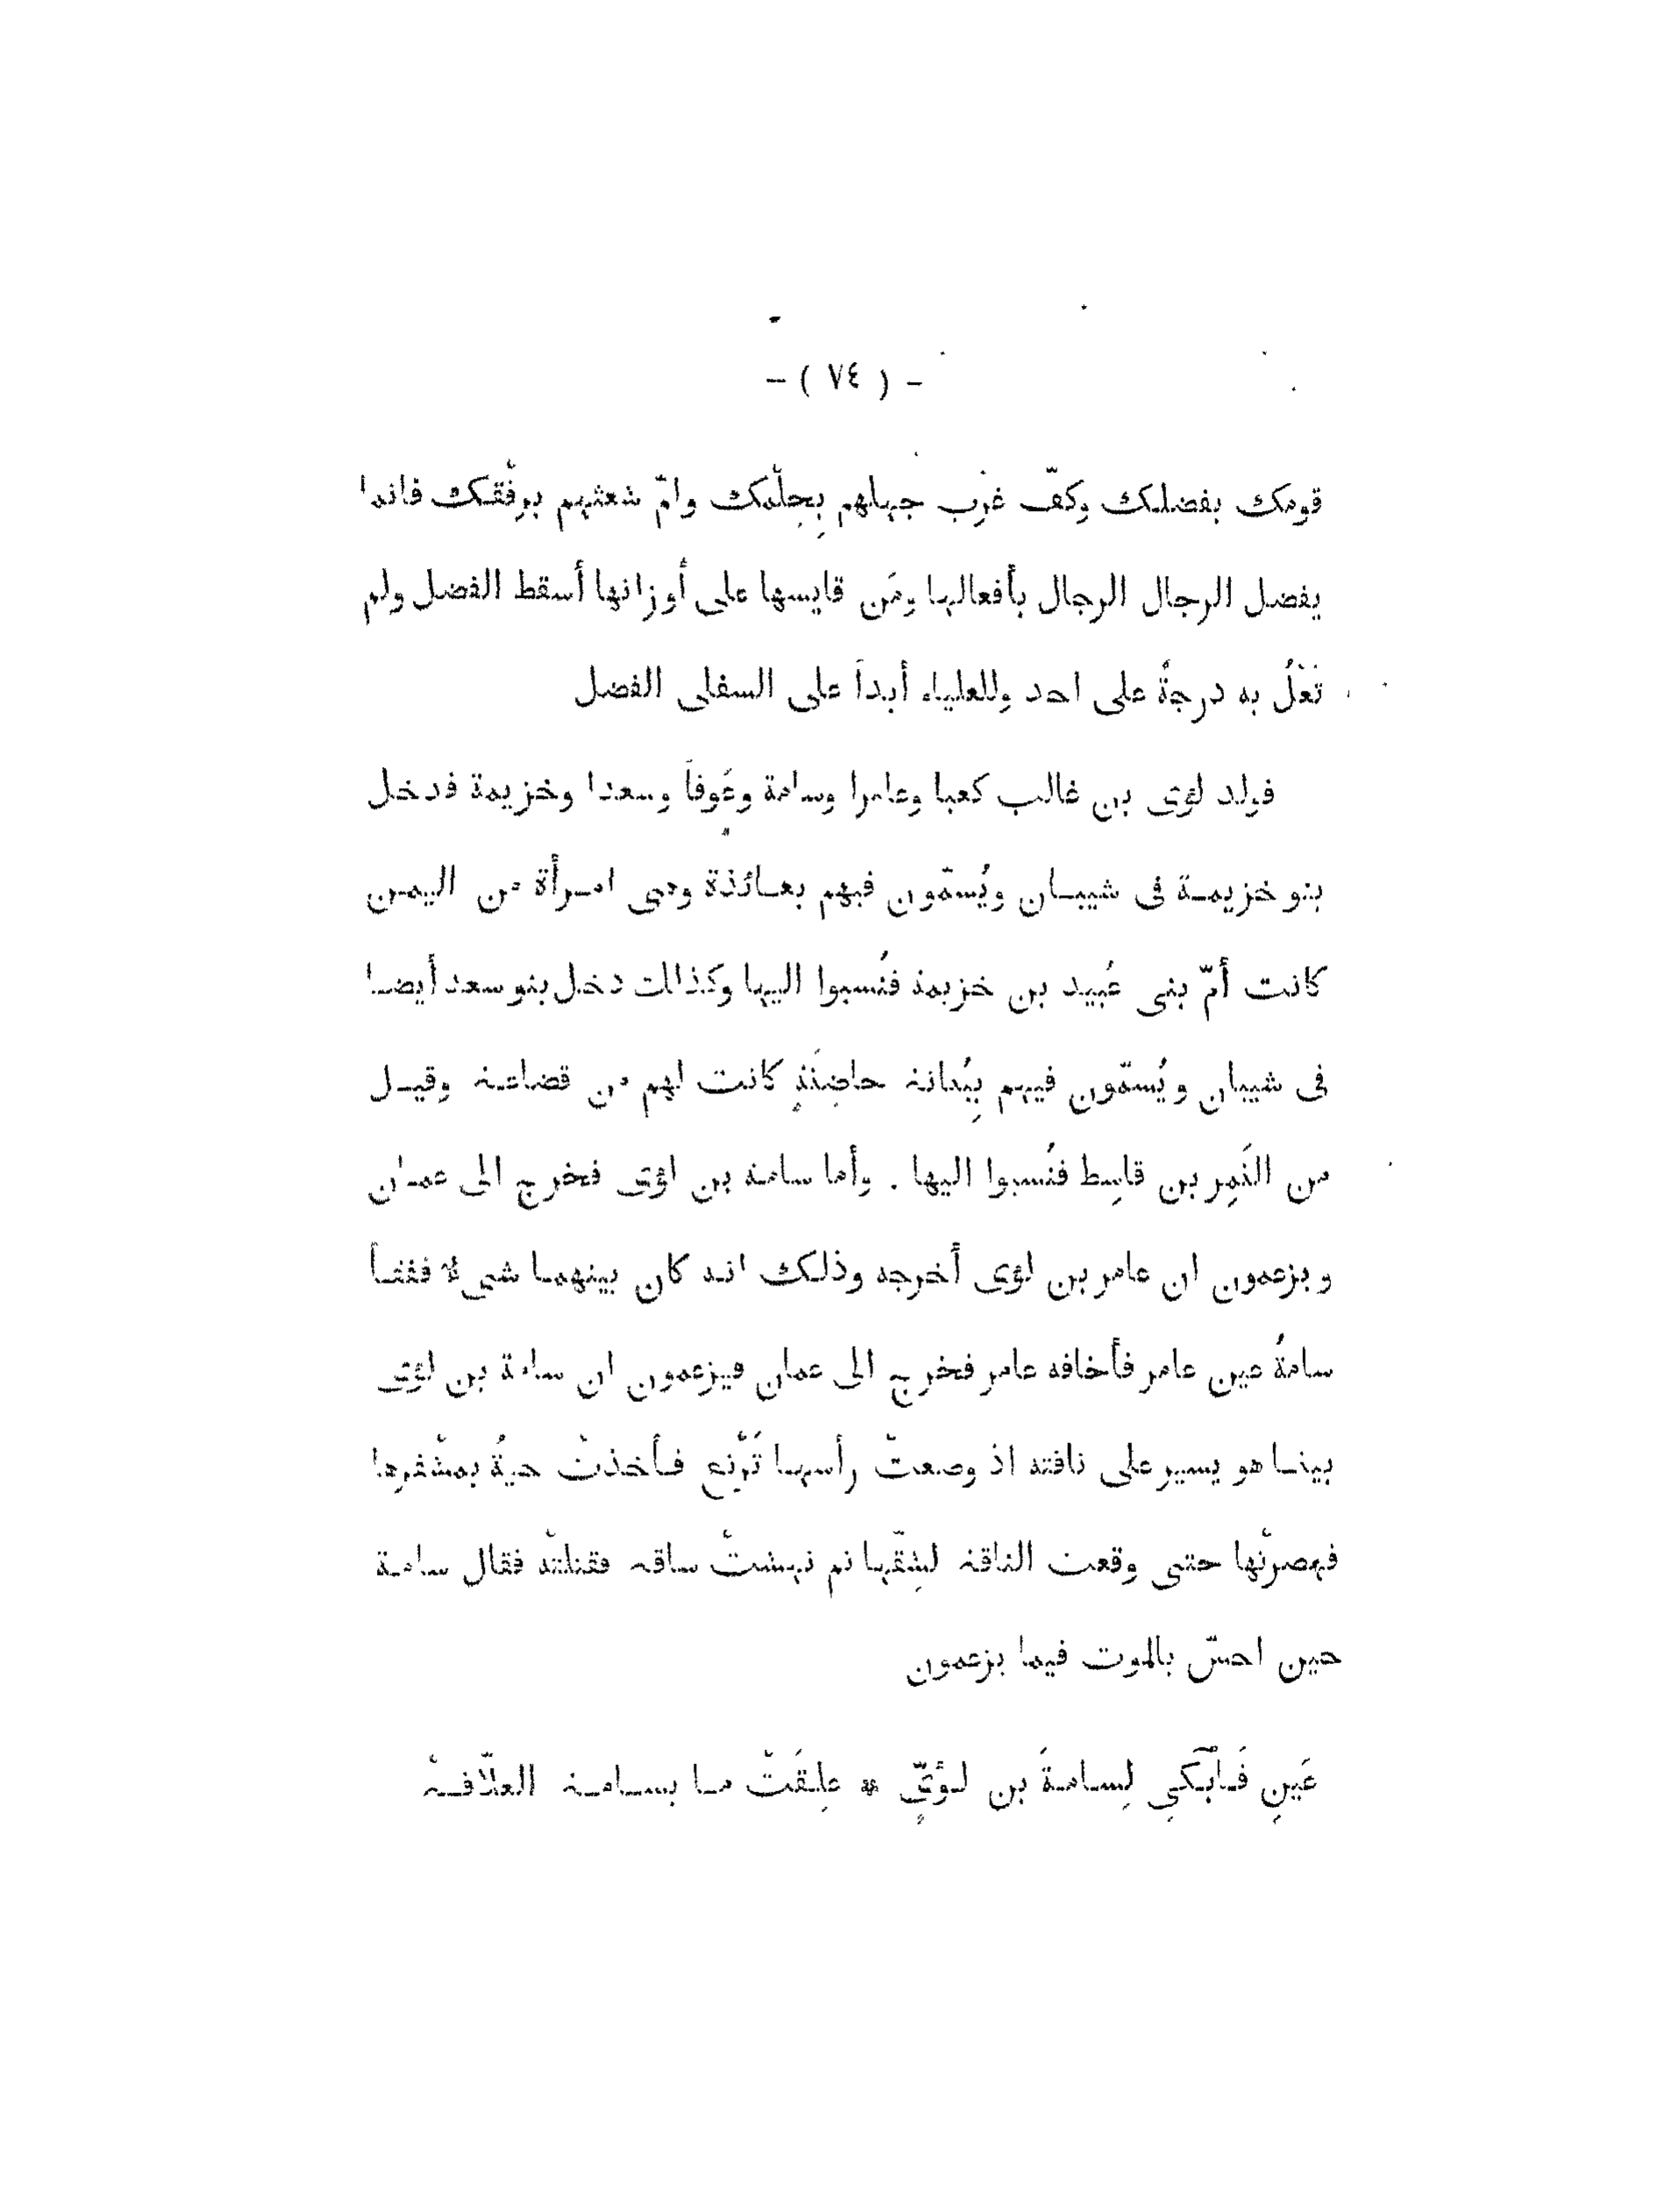 - ( ٧٤ ) -
قومك بفضلك وكفّ غَرْب جهلهم بِحِلْمك ولمّ شعثهم برِفْقك فانما
يفضل الرجال الرجال بأفعالها ومَن قايسها على أوزانها أسقط الفضل ولم
تَعْلُ به درجةٌ على احد وللعلياء أبداً على السفلى الفضل
فولد لؤى بن غالب كعبا وعامرا وسامة وعَوفاً وسعدا وخزيمة فدخل
بنو خزيمة فى شيبان ويُسمّون فيهم بعائذة وهى امرأة من اليمن
كانت أمّ بنى عُبيد بن خزيمة فنُسبوا اليها وكذلك دخل بنو سعد أيضا
فى شيبان ويُسمّون فيهم بِبُنانة حاضِنَةٍ كانت لهم من قضاعة وقيل
من النَمِر بن قاسِط فنُسبوا اليها . وأما سامة بن لؤى فخرج الى عمان
ويزعمون ان عامر بن لؤى أخرجه وذلك انه كان بينهما شىء ففقأ
سامةُ عين عامر فأخافه عامر فخرج الى عمان فيزعمون ان سامة بن لؤى
بينا هو يسير على ناقته اذ وضعتْ رأسها تَرْتِع فأخذتْ حيةٌ بمشْفرِها
فهصرتْها حتى وقعت الناقة لشِقّها ثم نهشتْ ساقه فقتلتْه فقال سامة
حين احسّ بالموت فيما يزعمون
عَينِ فَٱبْكي لِسامةَ بن لؤيٍّ * علِقَتْ ما بسامة العلّاقهْ